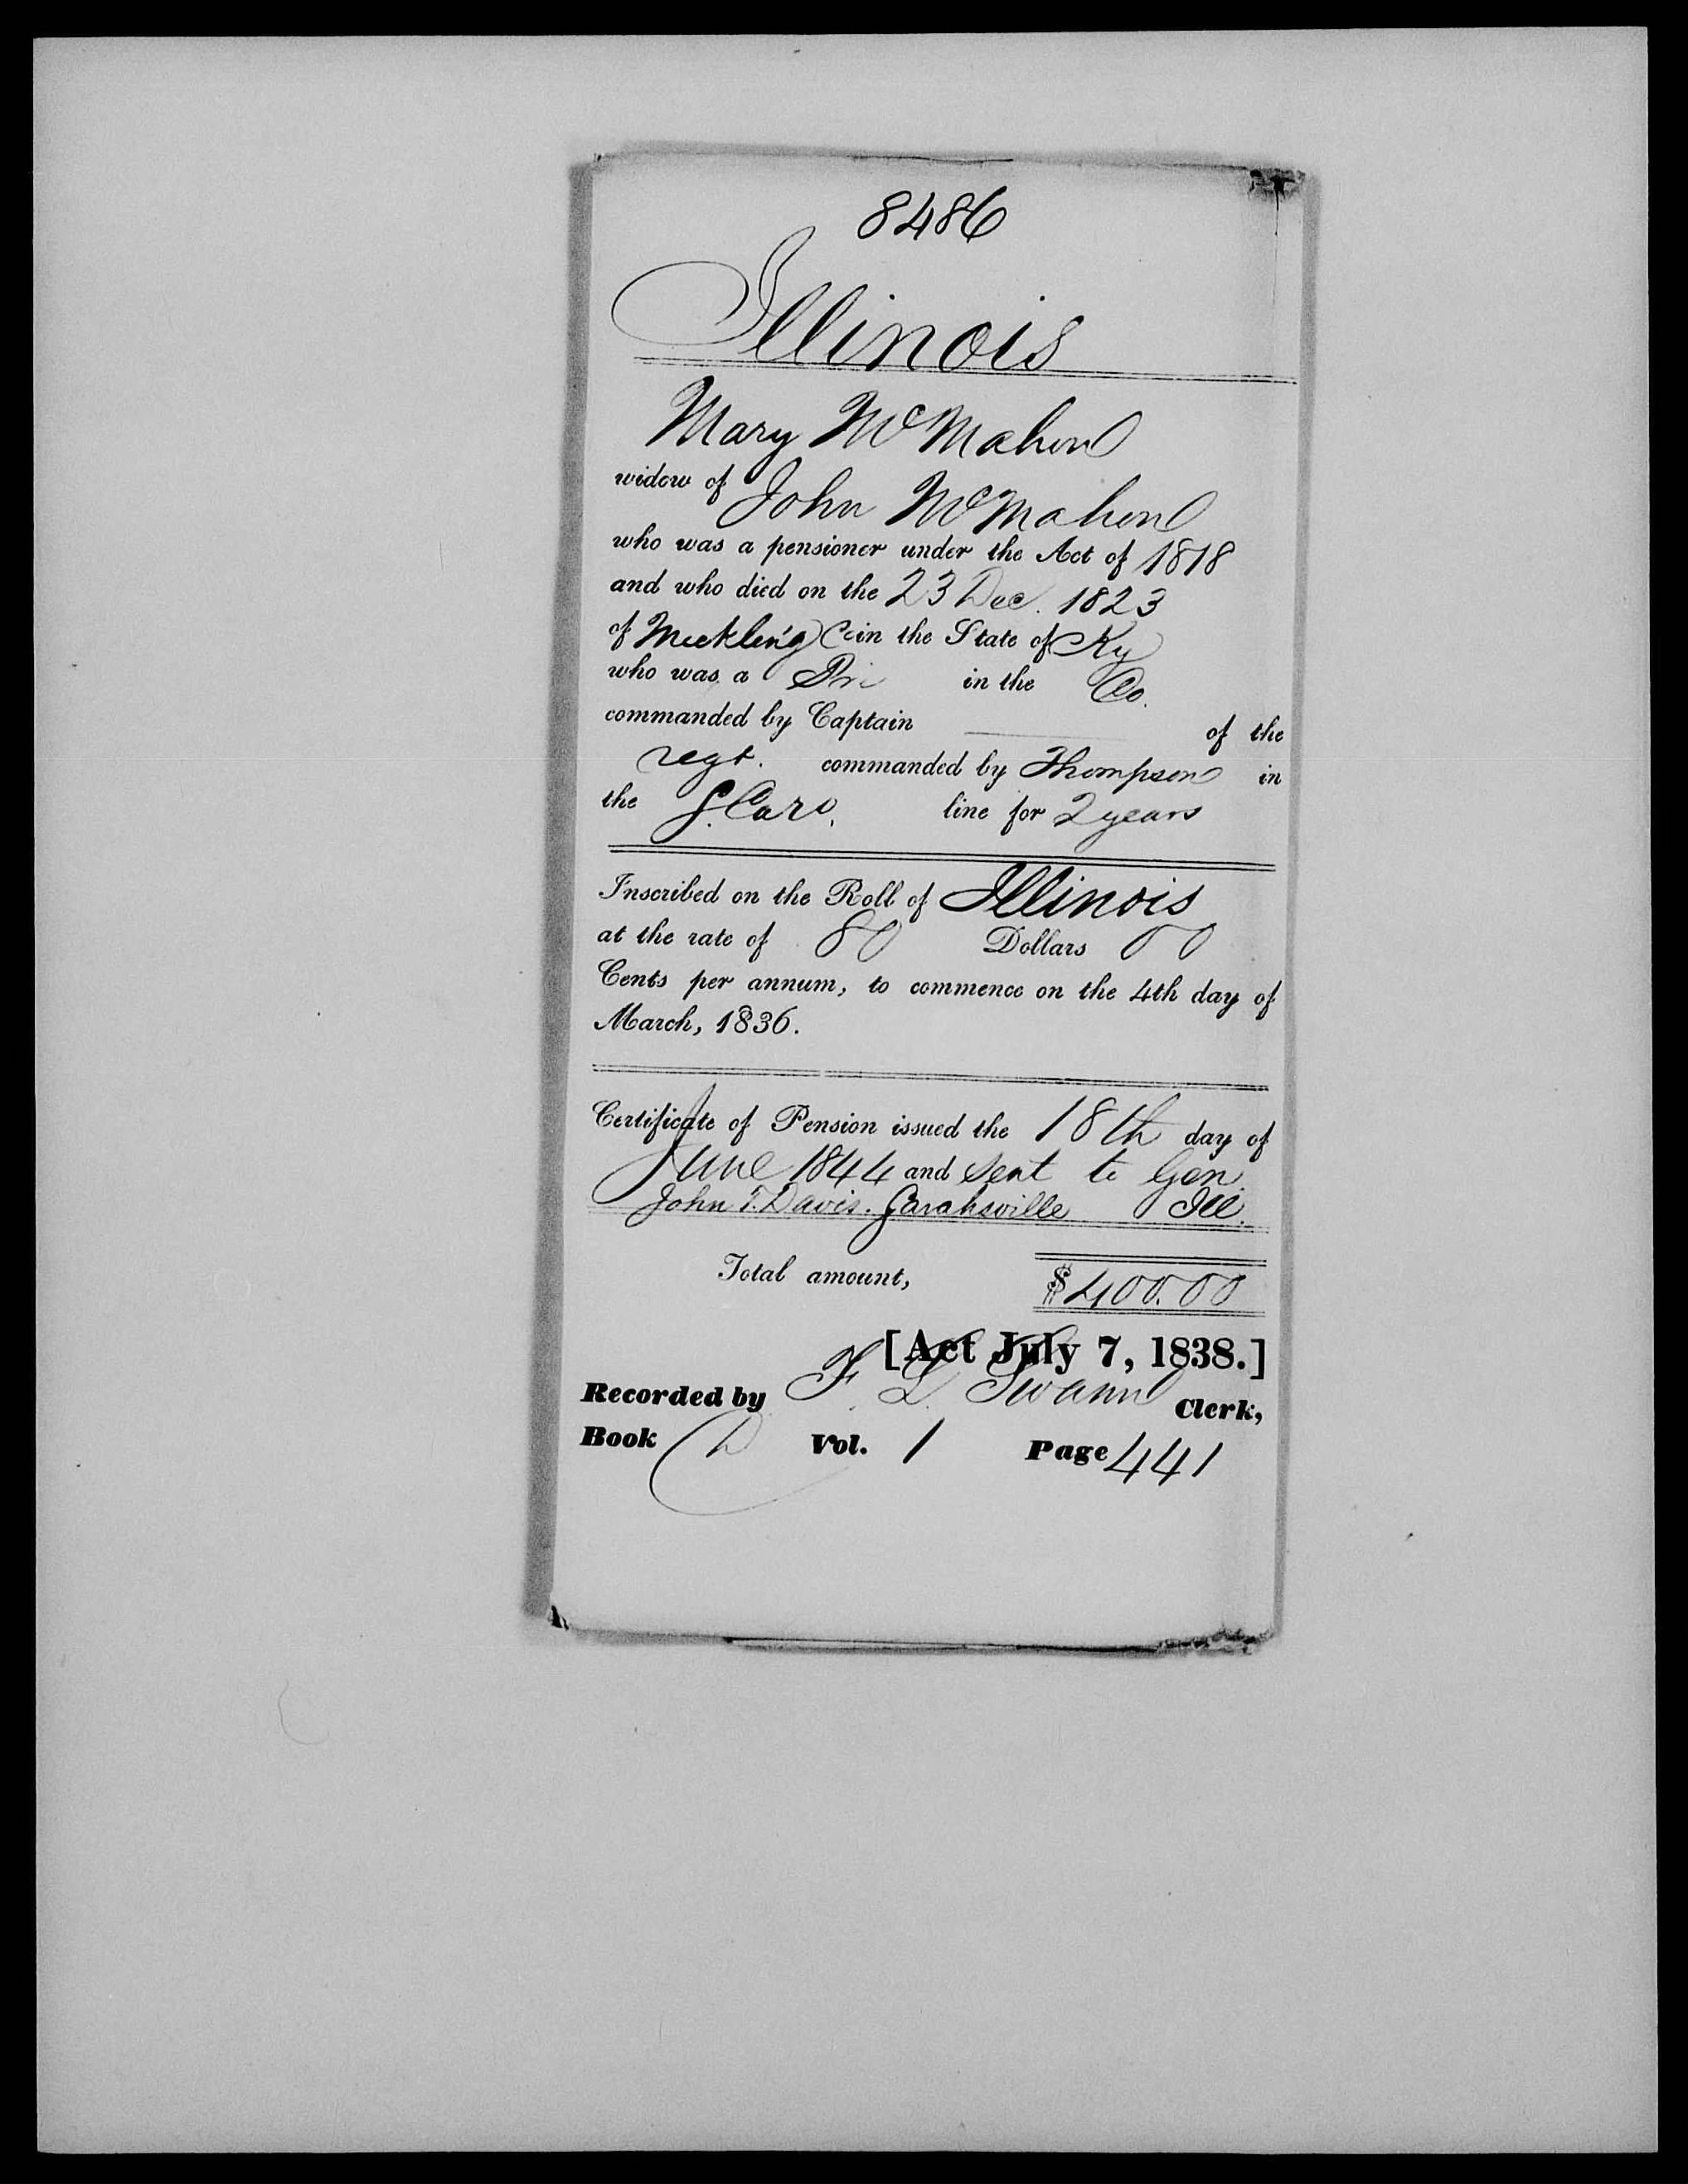 8486
Illinois
Mary McMahon
widow of John McMahon
who was a pensioner under the Act of 1818
and who died on the 23 Dec. 1823
of Meckling Co in the State of Ky
who was a Pri in the Co.
commanded by Captain of the
regt. commanded by Thompson in
the S. Caro. line for 2 years
Inscribed on the Roll of Illinois
at the rate of 80 Dollars 00
Cents per annum, to commence on the 4th day of
March, 1836.
Certificate of Pension issued the 18th day of
June 1844 and sent to Gen.
John T. Davis. Sarahsville Ill.
Total amount, $400.00
[Act July 7, 1838.]
Recorded by F. L. Swann Clerk,
Book D Vol. 1 Page 441